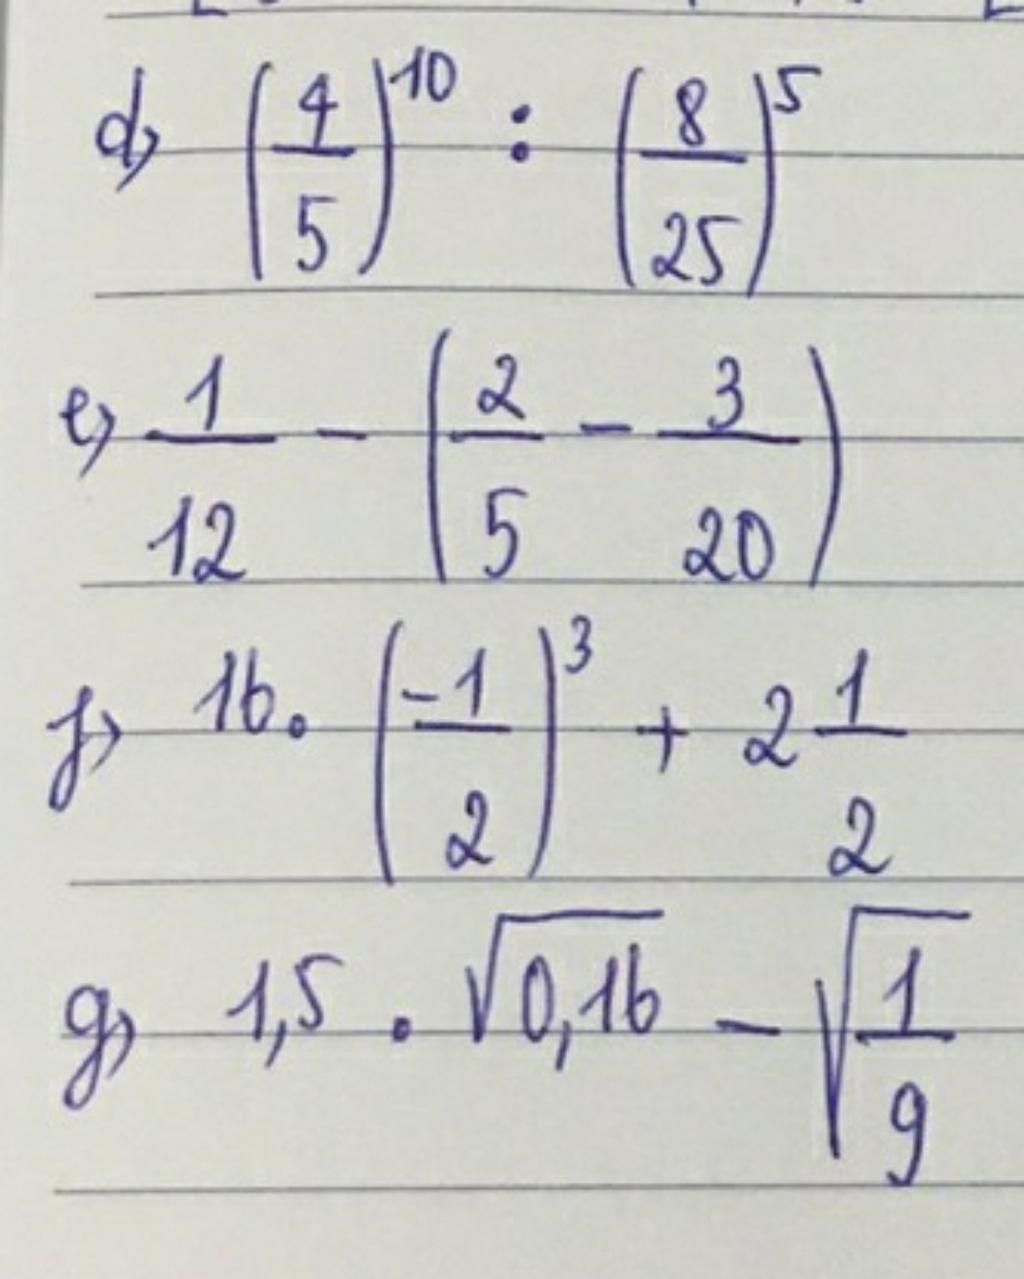 d) (4/5)^10 : (8/25)^5
e) 1/12 - (2/5 - 3/20)
f) 16. (-1/2)^3 + 2 1/2
g) 1,5 . √0,16 - √1/9